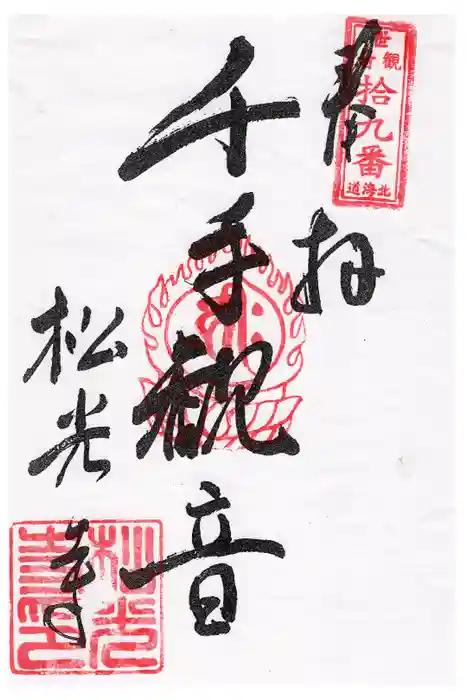 奉拝
拾九番
北海道
千手観音
松光寺
松光
寺印